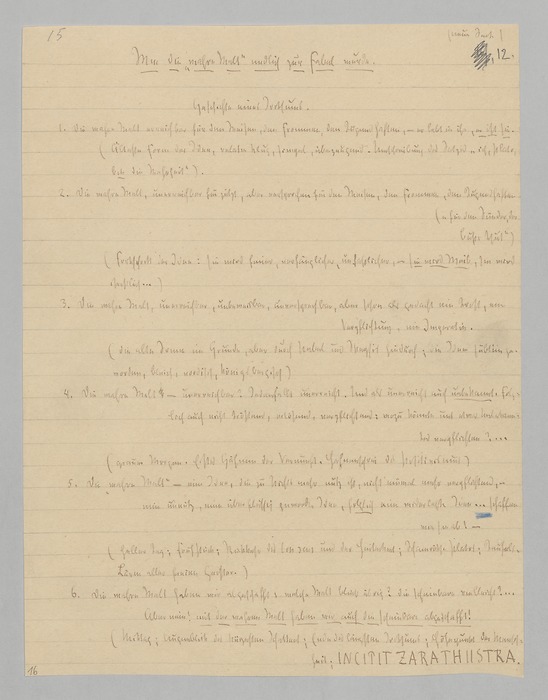 15
12.
Wie die „wahre Welt“ endlich zur Fabel wurde.
Geschichte eines Irrthums.
1. Die wahre Welt erreichbar für den Weisen, den Frommen, den Tugendhaften, — er lebt in ihr, er ist sie.
( Älteste Form der Idee, relativ klug, simpel, überzeugend. Umschreibung des Satzes „ich, Plato,
bin die Wahrheit“ ).
2. Die wahre Welt, unerreichbar für jetzt, aber versprochen für den Weisen, den Frommen, den Tugendhaften
( „für den Sünder, der
Buße thut“ )
( Fortschritt der Idee: sie wird feiner, verfänglicher, unfaßlicher, — sie wird Weib, sie wird
christlich... )
3. Die wahre Welt, unerreichbar, unbeweisbar, unversprechbar, aber schon als gedacht ein Trost, eine
Verpflichtung, ein Imperativ.
( die alte Sonne im Grunde, aber durch Nebel und Skepsis hindurch; die Idee sublim ge-
worden, bleich, nordisch, königsbergisch )
4. Die wahre Welt — unerreichbar? Jedenfalls unerreicht. Und als unerreicht auch unbekannt. Folg-
lich auch nicht tröstend, erlösend, verpflichtend: wozu könnte uns etwas Unbekanntes
verpflichten?...
( grauer Morgen. Erstes Gähnen der Vernunft. Hahnenschrei des Positivismus )
5. Die „wahre Welt“ — eine Idee, die zu Nichts mehr nütz ist, nicht einmal mehr verpflichtend, —
eine unnütz, eine überflüssig gewordene Idee, folglich eine widerlegte Idee ... schaffen
wir sie ab! —
( Heller Tag; Frühstück; Rückkehr des bon sens und der Heiterkeit; Schamröthe Plato's; Teufels-
Lärm aller freien Geister. )
6. Die wahre Welt haben wir abgeschafft: welche Welt blieb übrig? die scheinbare vielleicht?...
Aber nein! mit der wahren Welt haben wir auch die scheinbare abgeschafft!
( Mittag; Augenblick des kürzesten Schattens; Ende des längsten Irrthums; Höhepunkt der Mensch-
heit; INCIPIT ZARATHUSTRA.
16